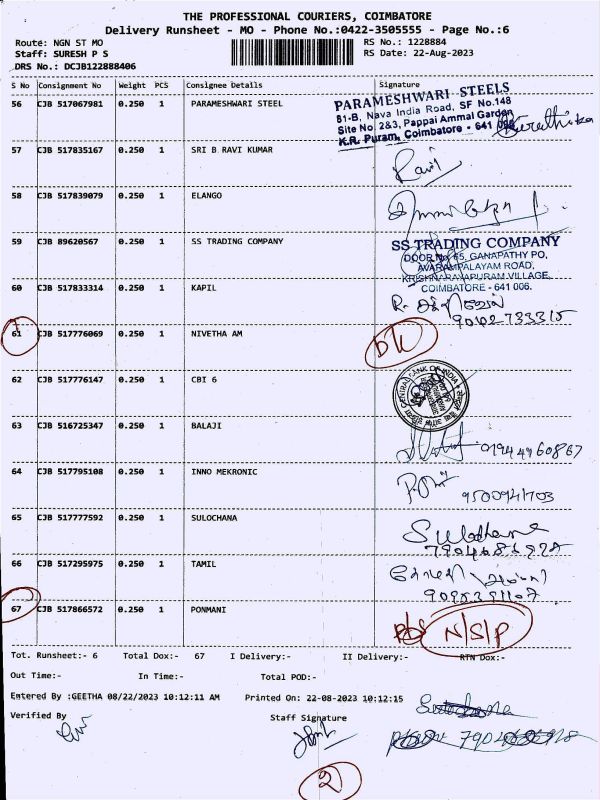 THE PROFESSIONAL COURIERS, COIMBATORE
Delivery Runsheet - MO - Phone No.:0422-3505555 - Page No.:6
Route: NGN ST MO
RS No.: 1228884
Staff: SURESH P S
RS Date: 22-Aug-2023
DRS No.: DCJB122888406
S No Consignment No Weight PCS Consignee Details Signature
56 CJB 517067981 0.250 1 PARAMESHWARI STEEL
PARAMESHWARI STEELS
81-B, Nava India Road, SF No.148
Site No 2&3, Pappai Ammal Garden
K.R. Puram, Coimbatore - 641
57 CJB 517835167 0.250 1 SRI B RAVI KUMAR
Ravi
58 CJB 517839079 0.250 1 ELANGO
59 CJB 89620567 0.250 1 SS TRADING COMPANY
SS TRADING COMPANY
DOOR No 65, GANAPATHY PO,
AVARAMPALAYAM ROAD,
KRISHNARAYAPURAM VILLAGE,
COIMBATORE - 641 006.
60 CJB 517833314 0.250 1 KAPIL
R.
61 CJB 517776069 0.250 1 NIVETHA AM
DK
62 CJB 517776147 0.250 1 CBI 6
CENTRAL BANK OF INDIA
63 CJB 516725347 0.250 1 BALAJI
64 CJB 517795108 0.250 1 INNO MEKRONIC
9500941703
65 CJB 517777592 0.250 1 SULOCHANA
66 CJB 517295975 0.250 1 TAMIL
67 CJB 517866572 0.250 1 PONMANI
N/S/P
Tot. Runsheet:- 6 Total Dox:- 67 I Delivery:- II Delivery:- RTN Dox:-
Out Time:- In Time:- Total POD:-
Entered By :GEETHA 08/22/2023 10:12:11 AM Printed On: 22-08-2023 10:12:15
Verified By Staff Signature
2